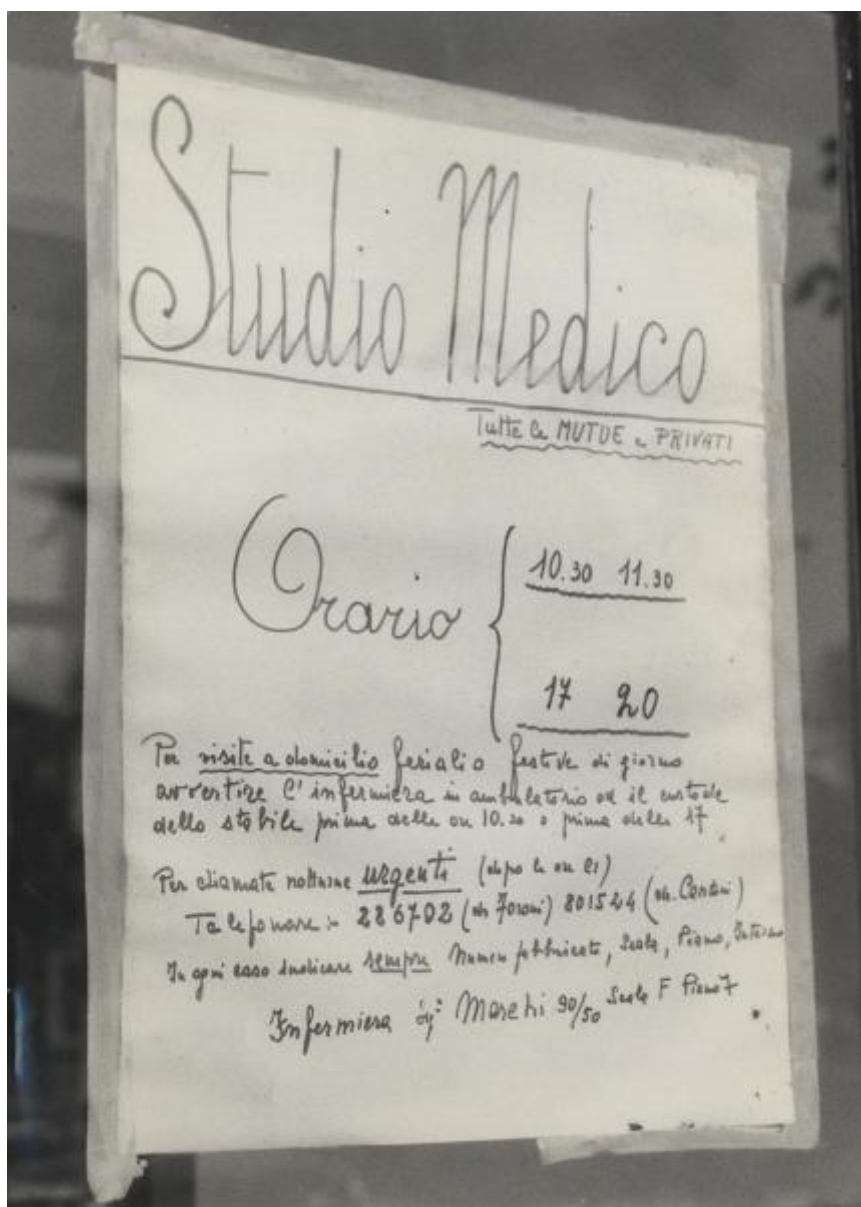 Studio Medico
Tutte le MUTUE e PRIVATI
Orario
10.30 11.30
17 20
Per visite a domicilio feriali o festive di giorno
avvertire l'infermiera in ambulatorio od il custode
dello stabile prima delle ore 10.30 o prima delle 17
Per chiamate notturne urgenti (dopo le ore 21)
Telefonare :- 286702 (dr Foroni) 801524 (dr. Contini)
In ogni caso indicare sempre Numero fabbricato, Scala, Piano, Interno
Infermiera Marchi 90/50 Scala F Piano 7